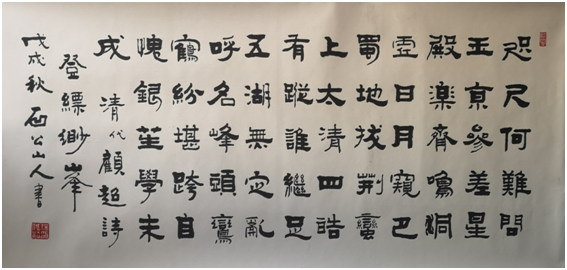 咫尺何難問
玉京參差星
殿樂齊鳴洞
霊日月窺巴
蜀地拔荆蠻
上太清四皓
有蹤誰繼足
五湖無定亂
呼名峰頭鸞
鶴紛堪跨自
愧銀笙學未
成 清代顧超詩
登縹緲峯
戊戌秋 石公山人書